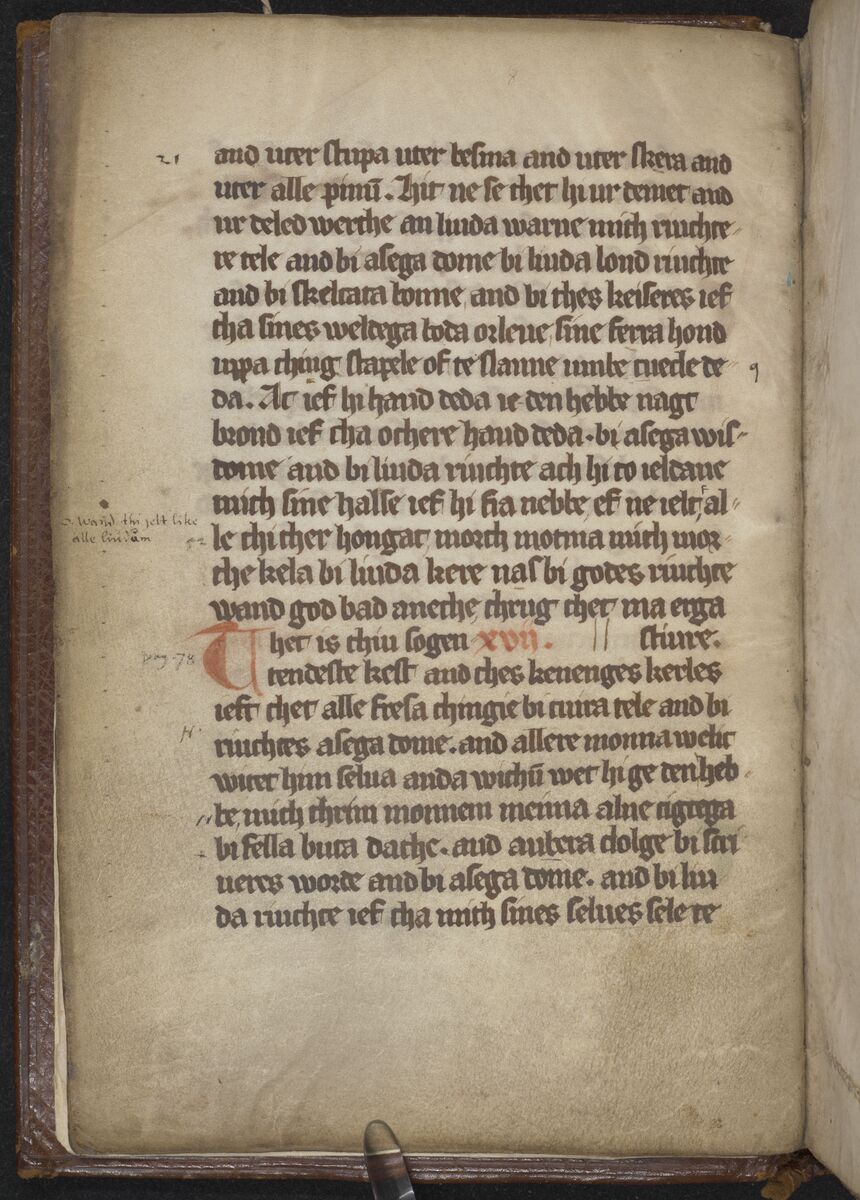 21
and uter stupa uter besma and uter skera and
uter alle pinū. Hit ne se thet hi ur demet and
ur deled werthe an liuda warue mith riuchte-
re tele and bi asega dome bi liuda lond riuchte
and bi skeltata bonne and bi thes keiseres ief
tha sines weldega boda orleue sine ferra hond
uppa thing stapele of te slanne umbe tuede de-
9
da. Ac ief hi haud deda ie den hebbe nagt
brond ief tha othere haud deda. bi asega wis-
dome and bi liuda riuchte ach hi to ieldane
mith sine halse ief hi fia nebbe ef ne ielt al-
Wand thi jelt like
alle liudum
le thi ther hongat morth motma mith mor-
the kela bi liuda kere nas bi godes riuchte
wand god bad aneche thrug thet ma erga
Thet is thiu sogen xvii. stiure.
pag. 78
tendeste kest and thes kenenges kerles
ieft thet alle fresa thingie bi tuira tele and bi
riuchtes asega dome. and allere monna wehc
witet him selua anda withū wet hi ge den heb-
be mith thrim monnem menna alne tigtega
bi fella buta dathe. and aubera dolge bi scri
ueres worde and bi asega dome. and bi liu
da riuchte ief tha mith sines selues sele te